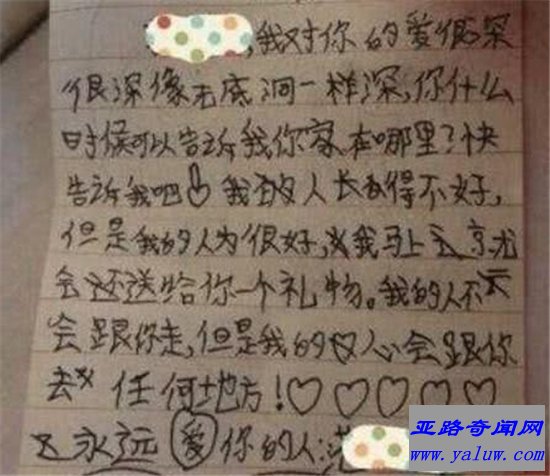 ,我对你的爱很深
很深像无底洞一样深,你什么
时候可以告诉我你家在哪里?快
告诉我吧 我的人长得不好,
但是我的人为很好,我马上就
会还送给你一个礼物。我的人不
会跟你走,但是我的心会跟你
去任何地方!♡♡♡♡♡
永远爱你的人:
亚路奇闻网
www.yaluw.com